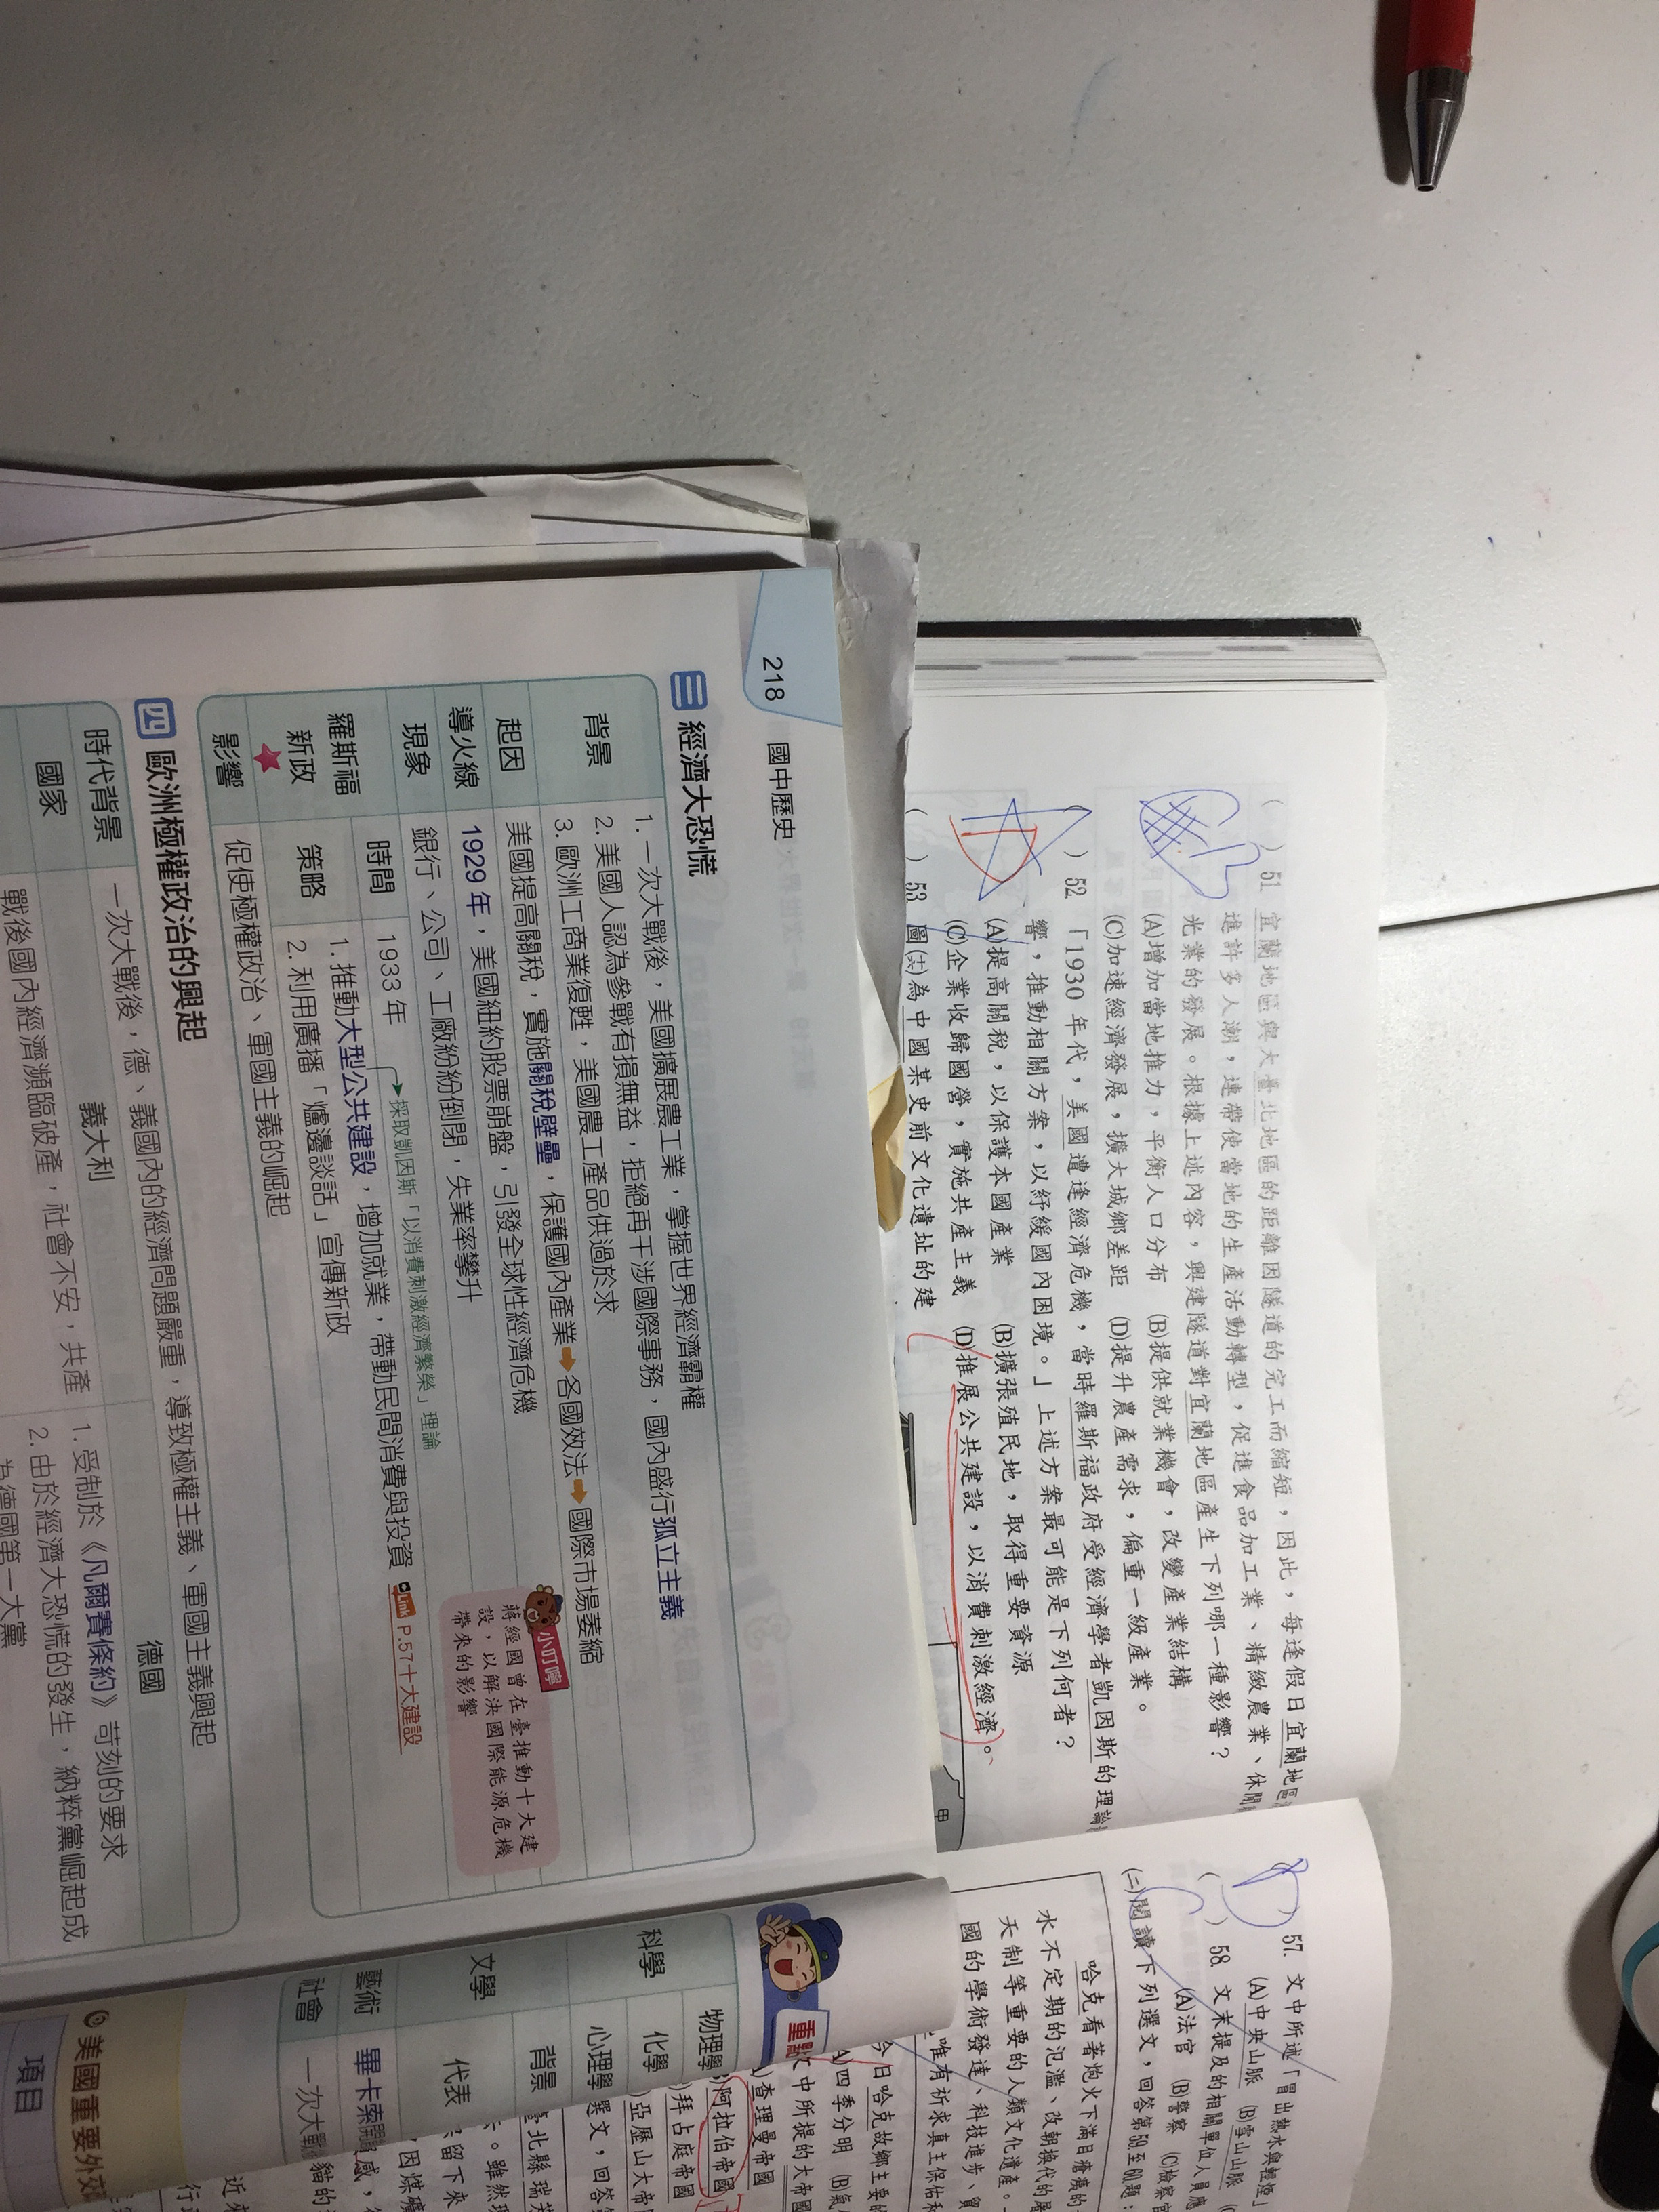 218 國中歷史
三 經濟大恐慌
背景
1. 一次大戰後，美國擴展農工業，掌握世界經濟霸權
2. 美國人認為參戰有損無益，拒絕再干涉國際事務，國內盛行孤立主義
3. 歐洲工商業復甦，美國農工產品供過於求
起因
美國提高關稅，實施關稅壁壘，保護國內產業➡各國效法➡國際市場萎縮
導火線
1929 年，美國紐約股票崩盤，引發全球性經濟危機
現象
銀行、公司、工廠紛紛倒閉，失業率攀升
羅斯福新政
時間
1933 年
採取凱因斯「以消費刺激經濟繁榮」理論
策略
1. 推動大型公共建設，增加就業，帶動民間消費與投資 Link P.57十大建設
2. 利用廣播「爐邊談話」宣傳新政
影響
促使極權政治、軍國主義的崛起
小叮嚀
蔣經國曾在臺推動十大建
設，以解決國際能源危機
帶來的影響
四 歐洲極權政治的興起
時代背景
一次大戰後，德、義國內的經濟問題嚴重，導致極權主義、軍國主義興起
國家
義大利
德國
戰後國內經濟瀕臨破產，社會不安，共產
1. 受制於《凡爾賽條約》苛刻的要求
2. 由於經濟大恐慌的發生，納粹黨崛起成
為德國第一大黨
( ) 51. 宜蘭地區與大臺北地區的距離因隧道的完工而縮短，因此，每逢假日宜蘭地區
進許多人潮，連帶使當地的生產活動轉型，促進食品加工業、精緻農業、休閒
光業的發展。根據上述內容，興建隧道對宜蘭地區產生下列哪一種影響？
(A)增加當地推力，平衡人口分布 (B)提供就業機會，改變產業結構
(C)加速經濟發展，擴大城鄉差距 (D)提升農產需求，偏重一級產業。
) 52. 「1930 年代，美國遭逢經濟危機，當時羅斯福政府受經濟學者凱因斯的理論
響，推動相關方案，以紓緩國內困境。」上述方案最可能是下列何者？
(A)提高關稅，以保護本國產業 (B)擴張殖民地，取得重要資源
(C)企業收歸國營，實施共產主義 (D)推展公共建設，以消費刺激經濟。
( ) 53. 圖(十六)為中國某史前文化遺址的建
甲
57. 文中所述「冒出熱水與輕煙」
(A)中央山脈 (B)雪山山脈
( ) 58. 文末提及的相關單位人員應
(A)法官 (B)警察 (C)檢察官
(二)閱讀下列選文，回答第59至
哈克看著炮火下滿目瘡痍的
水不定期的氾濫、改朝換代的
天制等重要的人類文化遺產。
國的學術發達、科技進步、貿
唯有祈求真主保佑
今日哈克故鄉主要的
A)四季分明 (B)氣
中所提的大帝國
查理曼帝國
阿拉伯帝國
拜占庭帝國
亞歷山大帝
選文，回答
臺北縣瑞
。雖然
留下來
因煤礦
感，
貓的
近
重點
科學
物理學
化學
心理學
文學
背景
代表
藝術
畢卡索開
社會
一次大戰
6 美國重要外交
項目